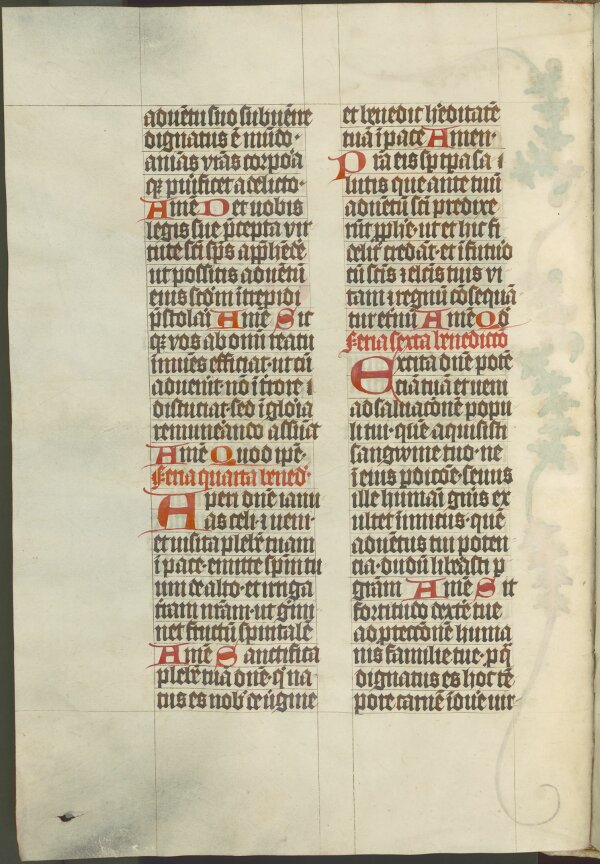 aduētu suo subuēire
dignatus ē mūdo·
aīas vr̄as corpo2a
q̄ purificet a celicto·
Amē Det uobis
legis sue p̄cepta vir
tute sc̄i sp̄s app̄hēde
ut possitis aduētū
eius scd̄m itrepidi
p̄stolari Amē Sit
q̄ vos ab omī reatu
imūes efficiat· ut cū
aduenit· nō ī t̄rore
discuciat· sed ī gloīa
remuneāndo assūat
Amē Quod ip̄e·
Feria quarta bened̄·
Aperi dn̄e ianu
as celi· ⁊ ueni·
et uisita plebē tuam
ī pace· emitte spiritu
um de alto· et iriga
t̄ram nr̄am· ut ḡmi
net fructū sp̄ritalē
Amē Sanctifica
plebē tuā dn̄e· q̄ na
tus es nob̄ de ūgine
et benedic hēditatē
tuā ī pace Amen·
Pr̄a eis sp̄ tp̄a sa
lutis que ante tuū
aduētū sc̄i predixe
rūt p̄ph̄e· ut et hic fi
celit̄ credāt· et ī futuo
cū sc̄is ⁊ elc̄is tuis vi
tam ⁊ regnū cōsequā
tur et̄nū Amē Qd̄
Feria sexta benedictō
Excita dn̄e potē
ciā tuā et ueni
ad saluacōnē popu
li tui· quē aquisisti
sangwine tuo· ne
ī eius p̄dicōe· seuus
ille humāi gn̄is ex
ultet inimicus· quē
aduētus tui poten
cia· dudū lib̄asti p
grām Amē Sit
fortitudo dext̄e tue
ad p̄teccōnē huma
nis familie tue· p̄ q̄
dignatus es hoc tē
pore carnē īduē uir